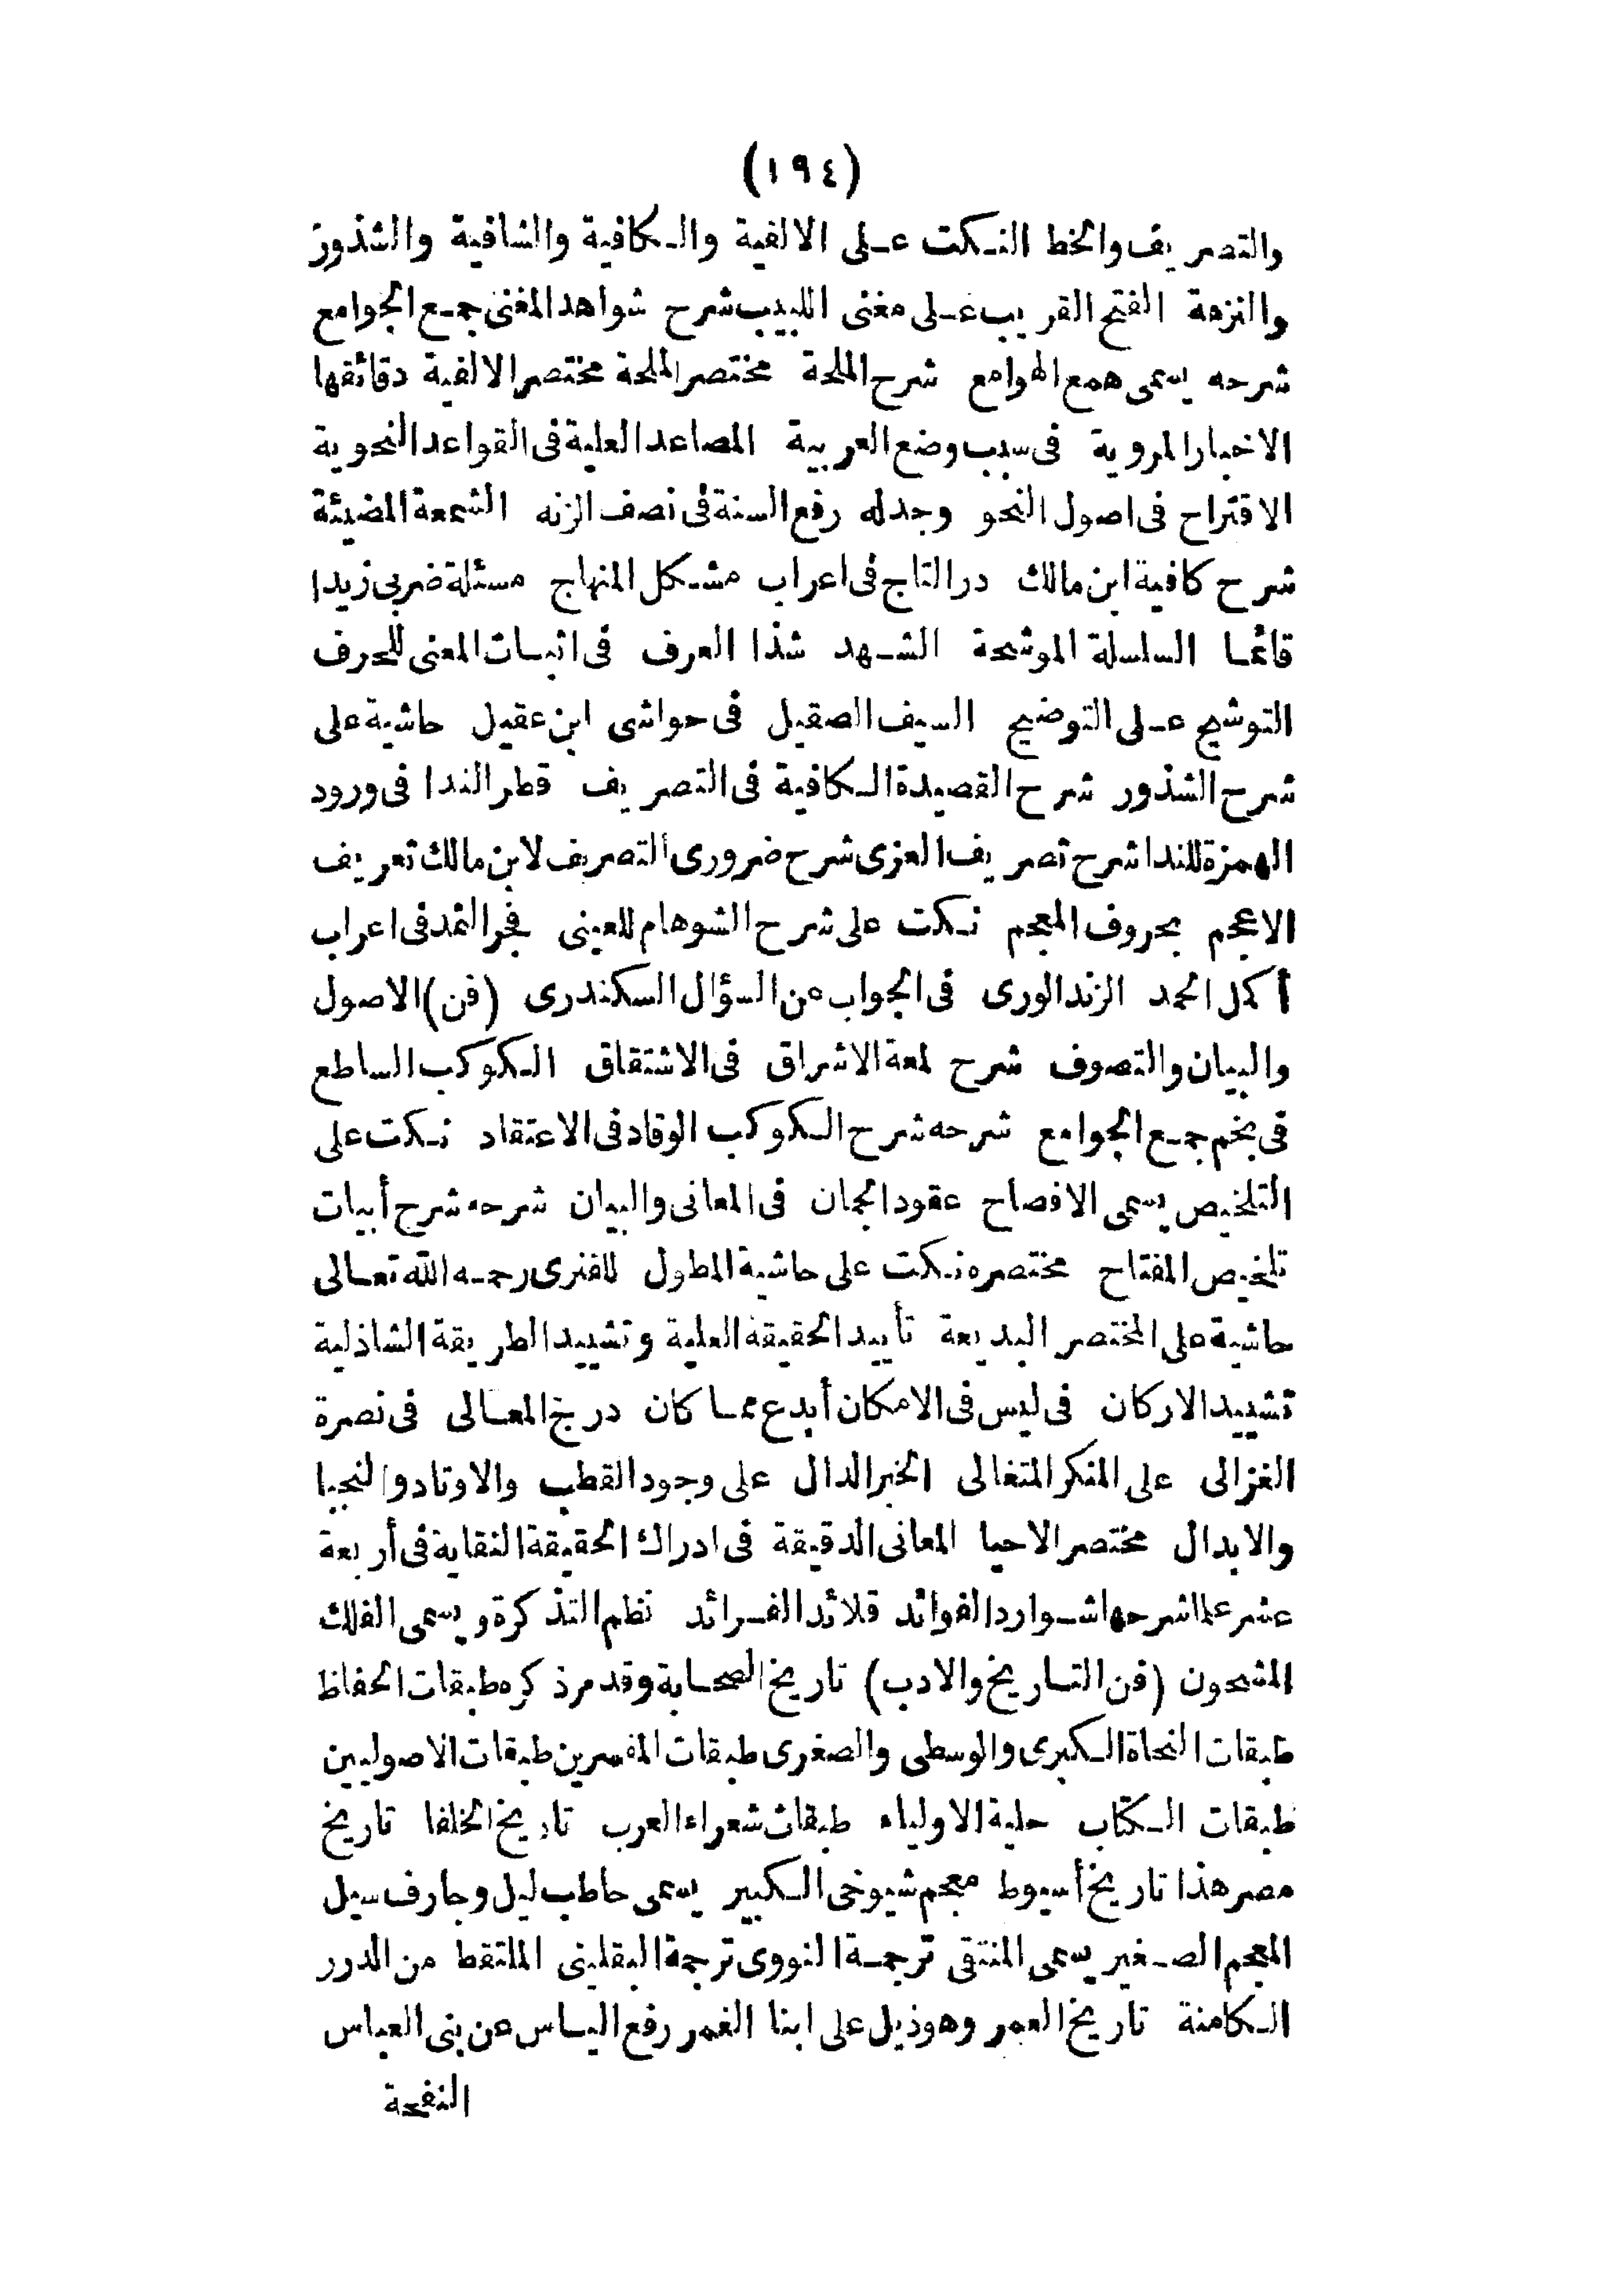 (١٩٤)
والتصريف والخط النكت على الالفية والكافية والشافية والشذور
والنزهة الفتح القريب على مغنى اللبيب شرح شواهد المغنى جمع الجوامع
شرحه يسمى همع الهوامع شرح الملحة مختصر الملحة مختصر الالفية دقائقها
الاخبار المروية فى سبب وضع العربية المصاعد العلية فى القواعد النحوية
الاقتراح فى اصول النحو وجدله رفع السنة فى نصف الزنه الشمعة المضيئة
شرح كافية ابن مالك در التاج فى اعراب مشكل المنهاج مسئلة ضربى زيدا
قائما السلسلة الموشحة الشهد شذا العرف فى اثبات المعنى للحرف
التوشيح على التوضيح السيف الصقيل فى حواشى ابن عقيل حاشية على
شرح الشذور شرح القصيدة الكافية فى التصريف قطر الندا فى ورود
الهمزة للندا شرح تصريف العزى شرح ضرورى التصريف لابن مالك تعريف
الاعجم بحروف المعجم نكت على شرح الشوهام للعينى فجر الثمد فى اعراب
أكمل الحمد الزند الورى فى الجواب عن السؤال السكندرى (فن) الاصول
والبيان والتصوف شرح لمعة الاشراق فى الاشتقاق الكوكب الساطع
فى نجم جمع الجوامع شرحه شرح الكوكب الوقاد فى الاعتقاد نكت على
التلخيص يسمى الافصاح عقود الجمان فى المعانى والبيان شرحه شرح أبيات
تلخيص المفتاح مختصره نكت على حاشية المطول للفنرى رحمه الله تعالى
حاشية على المختصر البديعة تأييد الحقيقة العلية وتشييد الطريقة الشاذلية
تشييد الاركان فى ليس فى الامكان أبدع مما كان درج المعالى فى نصرة
الغزالى على المنكر المتغالى الخبر الدال على وجود القطب والاوتاد والنجبا
والابدال مختصر الاحيا المعانى الدقيقة فى ادراك الحقيقة النقاية فى أربعة
عشر علما شرحها شوارد الفوائد قلائد الفرائد نظم التذكرة ويسمى الفلك
المشحون (فن التاريخ والادب) تاريخ الصحابة وقد مر ذكره طبقات الحفاظ
طبقات النحاة الكبرى والوسطى والصغرى طبقات المفسرين طبقات الاصوليين
طبقات الكتاب حلية الاولياء طبقات شعراء العرب تاريخ الخلفا تاريخ
مصر هذا تاريخ أسيوط معجم شيوخى الكبير يسمى حاطب ليل وجارف سيل
المعجم الصغير يسمى المنتقى ترجمة النووى ترجمة البقلينى الملتقط من الدرر
الكامنة تاريخ العمر وهو ذيل على ابنا الغمر رفع الباس عن بنى العباس
النفحة